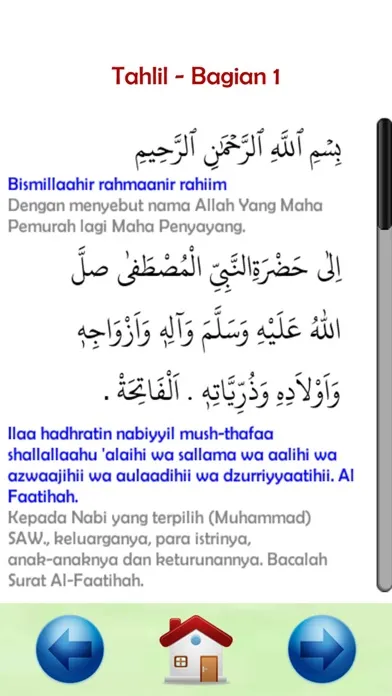 Tahlil - Bagian 1
بِسْمِ ٱللَّهِ ٱلرَّحْمَٰنِ ٱلرَّحِيمِ
Bismillaahir rahmaanir rahiim
Dengan menyebut nama Allah Yang Maha
Pemurah lagi Maha Penyayang.
اِلىٰ حَضْرَةِالنَّبِيِّ الْمُصْطَفٰى صلَّ
اللهُ عَلَيْهِ وَسَلَّمَ وَآلِهٖ وَاَزْوَاجِهٖ
وَاَوْلَادِهِ وَذُرِّيَّاتِهٖ . اَلْفَاتِحَةْ .
Ilaa hadhratin nabiyyil mush-thafaa
shallallaahu 'alaihi wa sallama wa aalihi wa
azwaajihii wa aulaadihii wa dzurriyyaatihii. Al
Faatihah.
Kepada Nabi yang terpilih (Muhammad)
SAW., keluarganya, para istrinya,
anak-anaknya dan keturunannya. Bacalah
Surat Al-Faatihah.